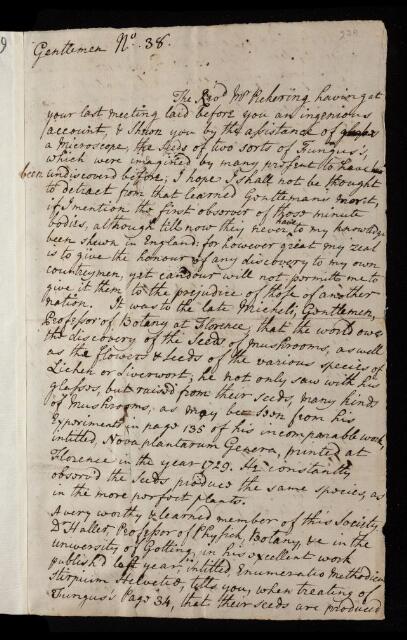 Gentlemen No. 38.
The Revd Mr Pickering having at
your last meeting laid before you an ingenious
account, & shewn you by the assistance of
a microscope, the seeds of two sorts of Fungus's,
which were imagined by many present to have
been undiscoverd before; I hope I shall not be thought
to detract from that learned Gentlemans merit,
if I mention the first observer of those minute
bodies, although till now they never have to my knowledge
been shewn in England: for however great my zeal
is to give the honour of any discovery to my own
countrymen, yet candour will not permitt me to
give it them to the prejudice of those of another
nation. It was to the late Micheli, Gentlemen,
Professor of Botany at Florence, that the world owes
the discovery of the seeds of mushrooms, as well
as the flowers & seeds of the various species of
Lichen or Liverwort; he not only saw with his
glasses, but raised from their seeds, many kinds
of mushrooms, as may be seen from his
Experiments in page 135 of his incomparable work,
intitled, Nova plantarum Genera, printed at
Florence in the year 1729. He constantly
observ'd the seeds produce the same species, as
in the more perfect plants.
A very worthy & learned member of this Society
Dr Haller, Professor of Physick, Botany, &c in the
university of Gotting, in his excellent work
publish'd last year, intitled Enumeratio Methodica
stirpium Helvetiæ, tells you, when treating of
Fungus's Page 34, that their seeds are produced